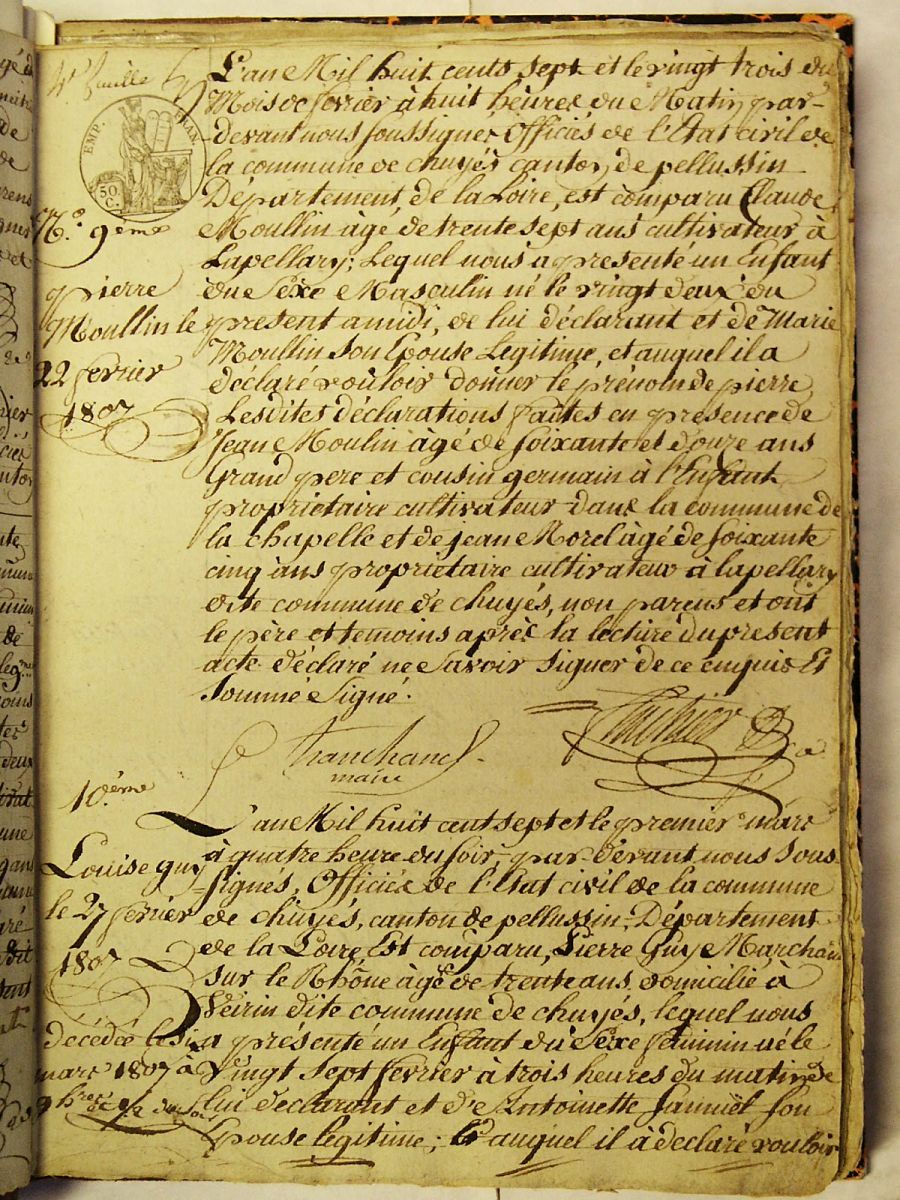 4e feuille
EMP. FRAN.
50 C.
N.o 9eme
pierre
Moullin le
22 fevrier
1807
L'an Mil huit cents sept et le vingt trois du
Mois de fevrier à huit heures du Matin, par-
devant nous soussignés, Officiés de l'Etat civil de
la commune de chuyés canton, de pellussin
Departement, de la Loire, est comparu Claude
Moullin âgé de trente sept ans cultivateur à
Lapellary; Lequel nous a presenté un Enfant
du Sexe Masculin né le vingt deux du
present a midi, de lui déclarant et de Marie
Moullin son Epouse Legitime, et auquel il a
déclaré vouloir donner le prénom de pierre
Lesdites déclarations faites en presence de
Jean Moulin âgé de soixante et douze ans
Grand pere et cousin germain à l'Enfant
propriétaire cultivateur dans la commune de
la chapelle et de jean Morel âgé de soixante
cinq ans proprietaire cultivateur à Lapellary
dite commune de chuyés, non parens et ont
le père et temoins après la lecture du present
acte déclaré ne savoir signer de ce enquis Et
Sommé Signé.
Tranchand
maire
10.éme
Louise guy
le 27 fevrier
1807
décédé le six
mars 1807 à
L'an Mil huit cent sept et le premier mars
à quatre heure du soir, par-devant nous sous-
signés, Officiés de l'Etat civil de la commune
de chuyés, canton de pellussin, Département
de la Loire, Est comparu, Pierre Guy Marchand
sur le Rhône âgé de trente ans, domicilié à
Vérin dite commune de chuyés, lequel nous
a présenté un Enfant du Sexe feminin né le
Vingt sept fevrier à trois heures du matin de
lui déclarant et d'Antoinette son
Epouse legitime; auquel il à declaré vouloir